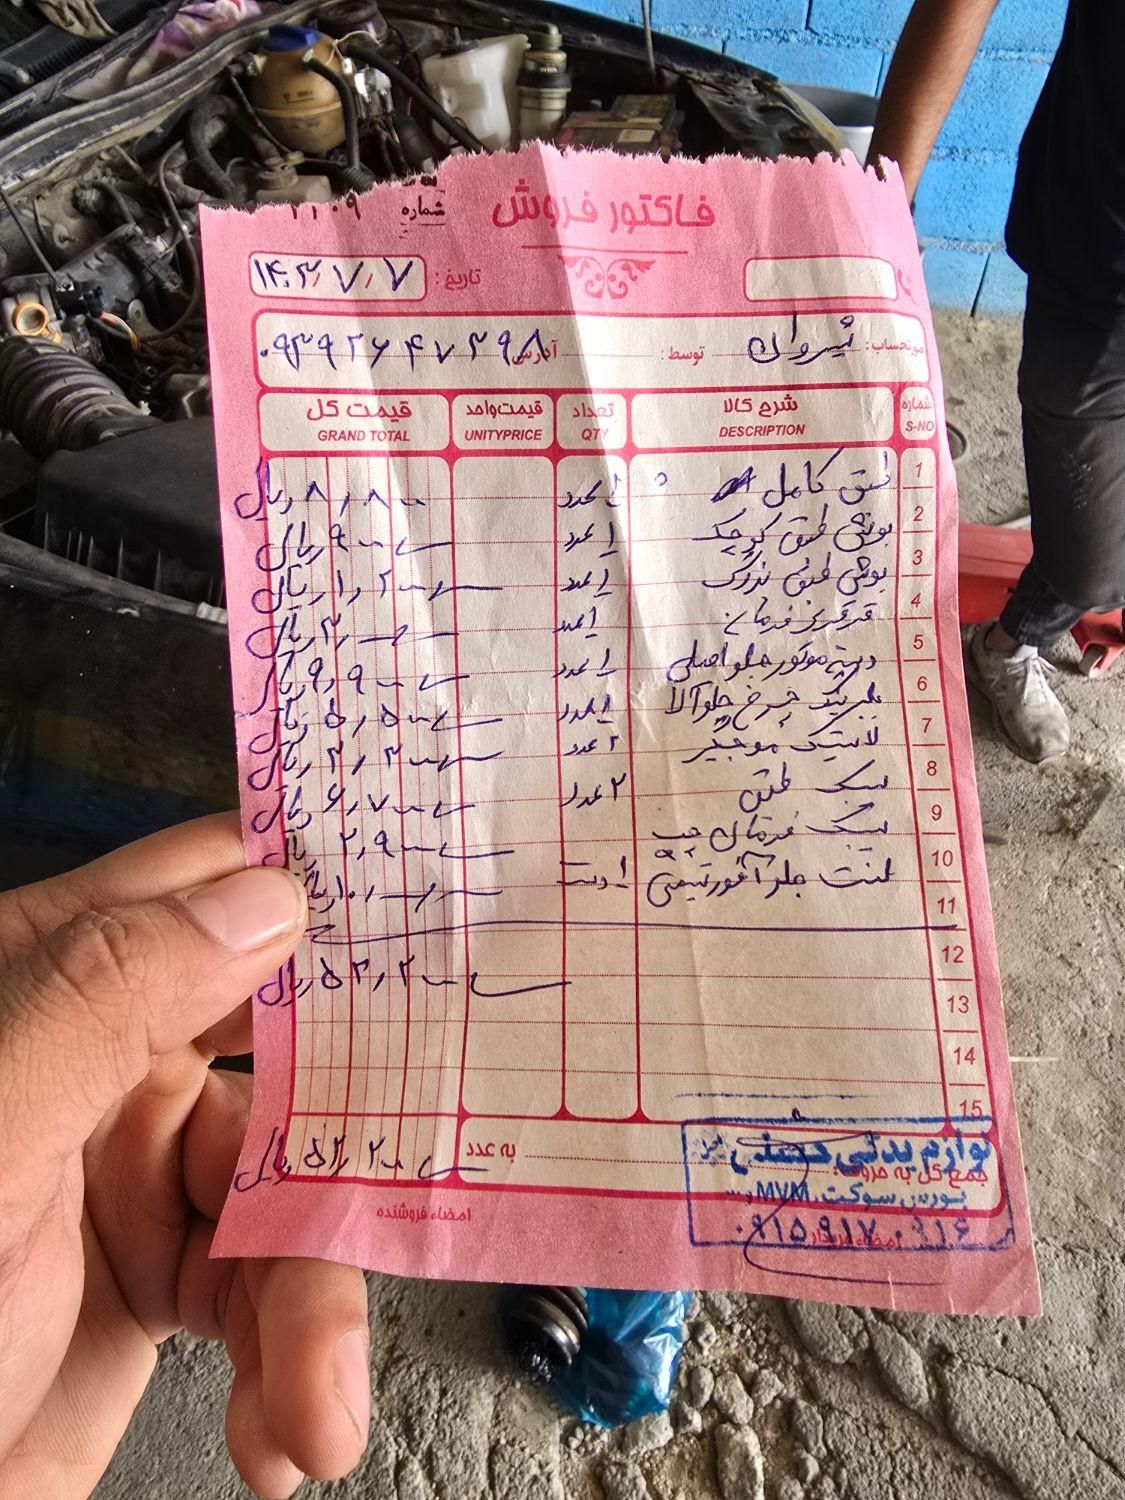 فاکتور فروش
شماره
تاریخ: ۱۴۰۳/۷/۷
صورتحساب: شیروان توسط: آدرس ۰۹۳۹۲۶۴۷۳۹۸
شماره S-NO شرح کالا DESCRIPTION تعداد QTY قیمت واحد UNITYPRICE قیمت کل GRAND TOTAL
1 طبق کامل ۱ عدد ۸٫۸۰۰ ریال
2 بوش طبق کوچک ۱ عدد ۹۰۰ ریال
3 بوش طبق بزرگ ۱ عدد ۱٫۲۰۰ ریال
4 قرقری فرمان ۱ عدد ۳٫۰۰۰ ریال
5 دسته موتور جلو اصلی ۱ عدد ۹٫۹۰۰ ریال
6 بلبرینگ چرخ جلو آلا ۱ عدد ۵٫۵۰۰ ریال
7 لاستیک موجگیر ۲ عدد ۳٫۳۰۰ ریال
8 سیبک طبق ۲ عدد ۶٫۷۰۰ ریال
9 سیبک فرمان چپ ۲٫۹۰۰ ریال
10 لنت جلو ۱ دست ۱۰٫۰۰۰ ریال
11
12 ۵۲٫۲۰۰ ریال
13
14
15
جمع کل به حروف: به عدد ۵۲٫۲۰۰ ریال
لوازم یدکی حسینی
بورس سوکت، MVM و...
۰۹۱۵۹۱۷۰۹۱۶
امضاء خریدار امضاء فروشنده